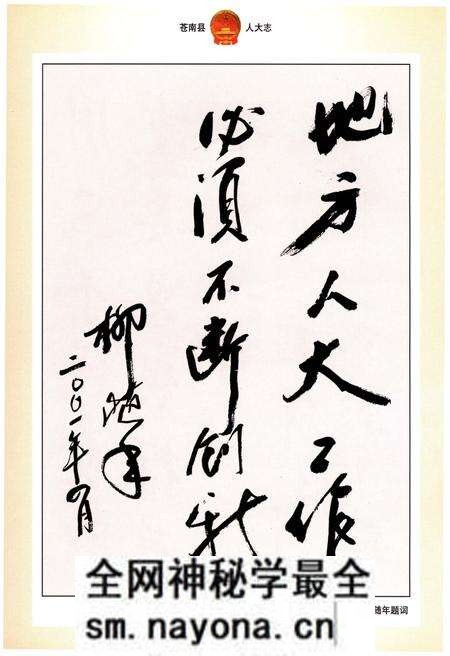 苍南县 人大志
地方人大工作
必须不断创新
柳随年
二〇〇一年八月
随年题词
全网神秘学最全
sm.nayona.cn